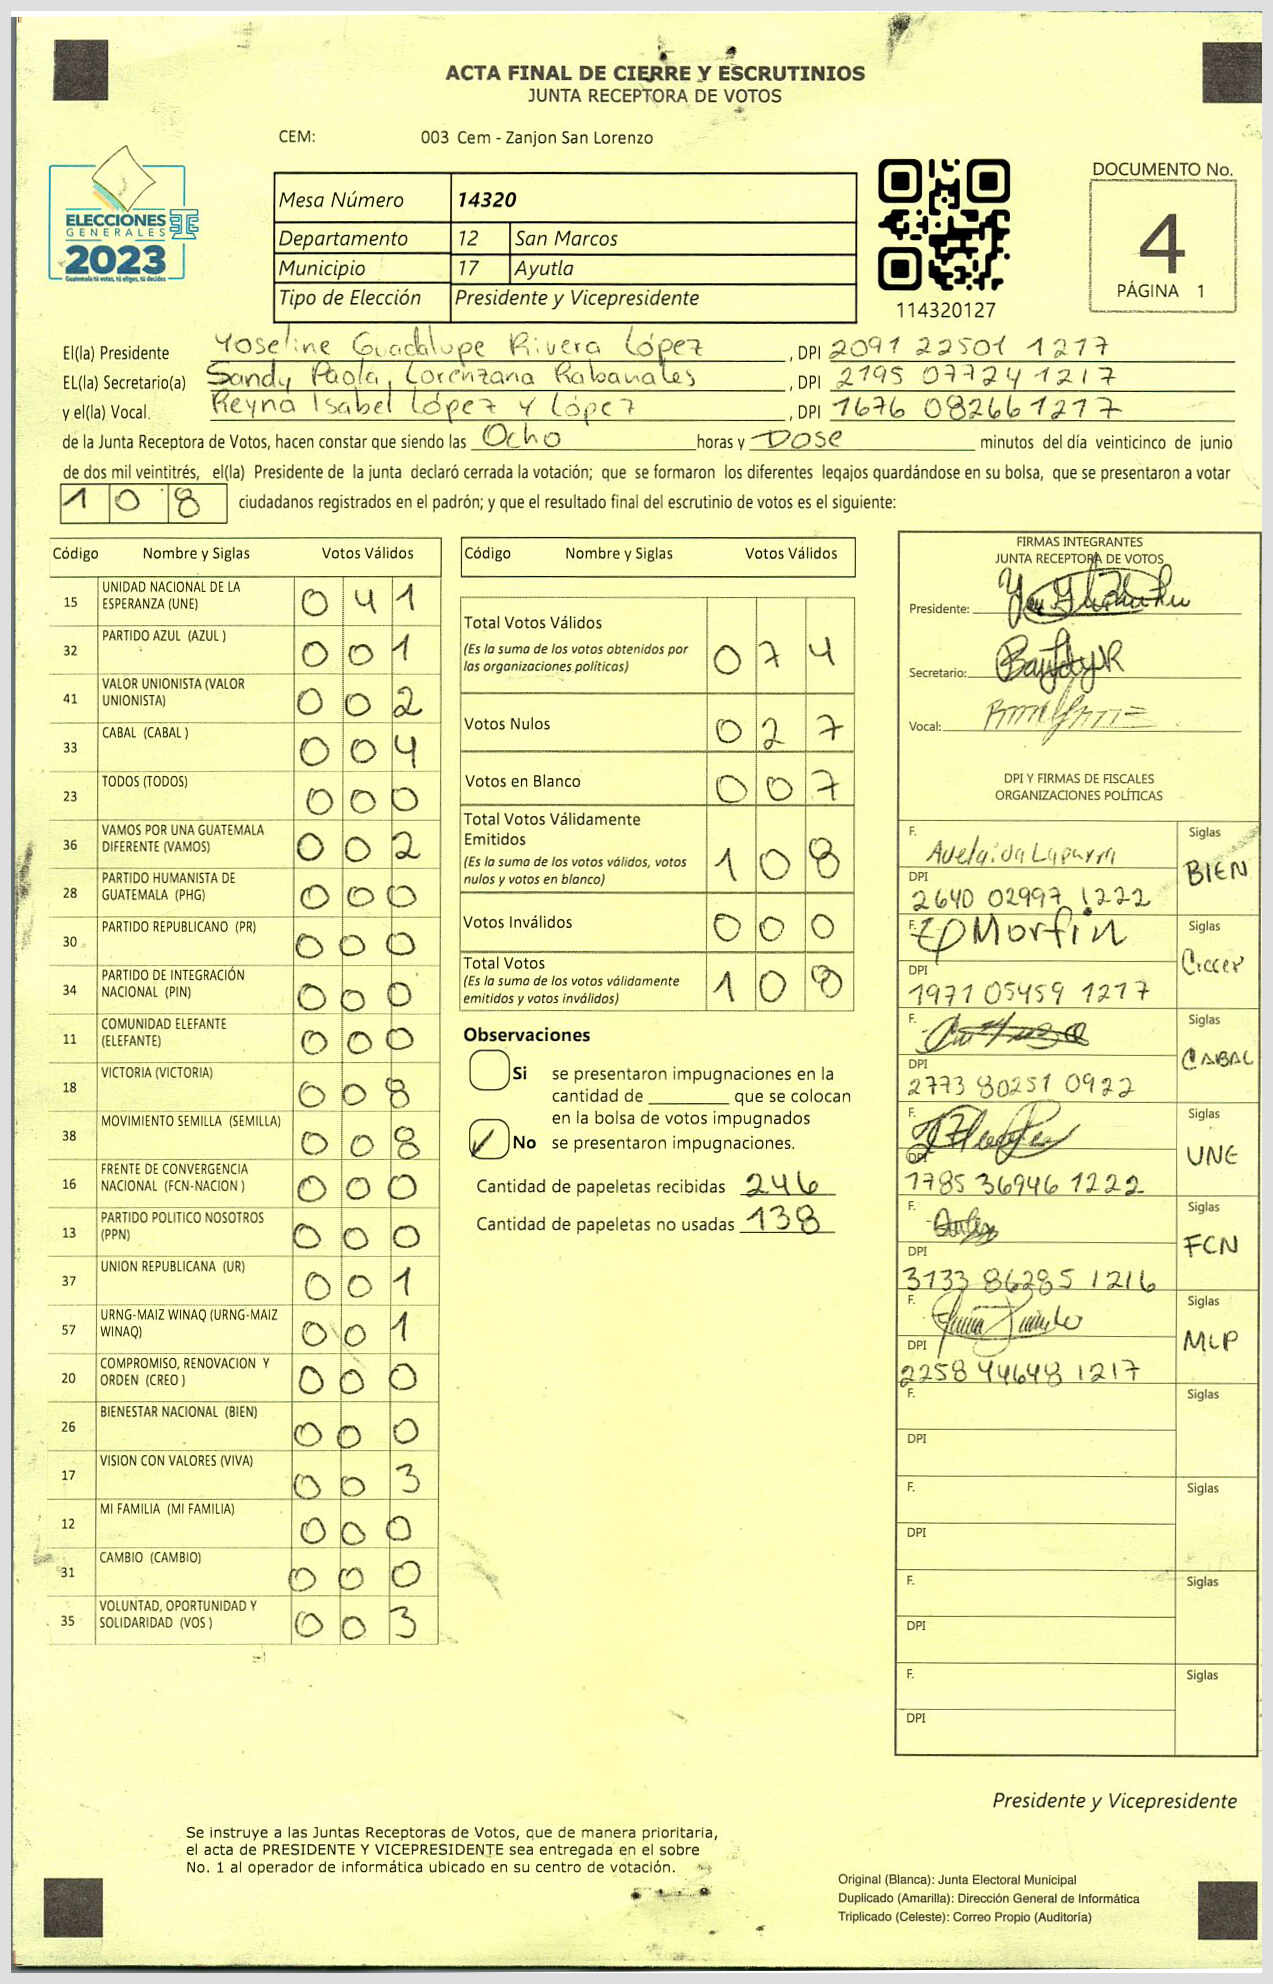 ACTA FINAL DE CIERRE Y ESCRUTINIOS
JUNTA RECEPTORA DE VOTOS
CEM: 003 Cem - Zanjon San Lorenzo
ELECCIONES
GENERALES
2023
Guatemala tú votas, tú eliges, tú decides
Mesa Número 14320
Departamento 12 San Marcos
Municipio 17 Ayutla
Tipo de Elección Presidente y Vicepresidente
114320127
DOCUMENTO No.
4
PÁGINA 1
El(la) Presidente Yoseline Guadalupe Rivera López, DPI 2091 22501 1217
EL(la) Secretario(a) Sandy Paola Lorenzana Rabanales, DPI 2195 07724 1217
y el(la) Vocal. Reyna Isabel López y López, DPI 1676 08266 1217
de la Junta Receptora de Votos, hacen constar que siendo las Ocho horas y Dose minutos del día veinticinco de junio
de dos mil veintitrés, el(la) Presidente de la junta declaró cerrada la votación; que se formaron los diferentes legajos guardándose en su bolsa, que se presentaron a votar
108 ciudadanos registrados en el padrón; y que el resultado final del escrutinio de votos es el siguiente:
Código Nombre y Siglas Votos Válidos
15 UNIDAD NACIONAL DE LA ESPERANZA (UNE) 041
32 PARTIDO AZUL (AZUL ) 001
41 VALOR UNIONISTA (VALOR UNIONISTA) 002
33 CABAL (CABAL ) 004
23 TODOS (TODOS) 000
36 VAMOS POR UNA GUATEMALA DIFERENTE (VAMOS) 002
28 PARTIDO HUMANISTA DE GUATEMALA (PHG) 000
30 PARTIDO REPUBLICANO (PR) 000
34 PARTIDO DE INTEGRACIÓN NACIONAL (PIN) 000
11 COMUNIDAD ELEFANTE (ELEFANTE) 000
18 VICTORIA (VICTORIA) 008
38 MOVIMIENTO SEMILLA (SEMILLA) 008
16 FRENTE DE CONVERGENCIA NACIONAL (FCN-NACION ) 000
13 PARTIDO POLITICO NOSOTROS (PPN) 000
37 UNION REPUBLICANA (UR) 001
57 URNG-MAIZ WINAQ (URNG-MAIZ WINAQ) 001
20 COMPROMISO, RENOVACION Y ORDEN (CREO ) 000
26 BIENESTAR NACIONAL (BIEN) 000
17 VISION CON VALORES (VIVA) 003
12 MI FAMILIA (MI FAMILIA) 000
31 CAMBIO (CAMBIO) 000
35 VOLUNTAD, OPORTUNIDAD Y SOLIDARIDAD (VOS ) 003
Código Nombre y Siglas Votos Válidos
Total Votos Válidos 074
(Es la suma de los votos obtenidos por
las organizaciones políticas)
Votos Nulos 027
Votos en Blanco 007
Total Votos Válidamente
Emitidos 108
(Es la suma de los votos válidos, votos
nulos y votos en blanco)
Votos Inválidos 000
Total Votos 108
(Es la suma de los votos válidamente
emitidos y votos inválidos)
Observaciones
Si se presentaron impugnaciones en la
cantidad de ________ que se colocan
en la bolsa de votos impugnados
No se presentaron impugnaciones.
Cantidad de papeletas recibidas 246
Cantidad de papeletas no usadas 138
FIRMAS INTEGRANTES
JUNTA RECEPTORA DE VOTOS
Presidente:
Secretario:
Vocal:
DPI Y FIRMAS DE FISCALES
ORGANIZACIONES POLÍTICAS
F. Siglas
BIEN
DPI
2640 02997 1222
F. Morfin Siglas
DPI
1971 05459 1217
F. Siglas
CABAL
DPI
2773 80251 0922
F. Siglas
UNE
DPI
1785 36946 1222
F. Siglas
FCN
DPI
3133 86285 1216
F. Siglas
MLP
DPI
2258 44648 1217
F. Siglas
DPI
F. Siglas
DPI
F. Siglas
DPI
F. Siglas
DPI
Presidente y Vicepresidente
Se instruye a las Juntas Receptoras de Votos, que de manera prioritaria,
el acta de PRESIDENTE Y VICEPRESIDENTE sea entregada en el sobre
No. 1 al operador de informática ubicado en su centro de votación.
Original (Blanca): Junta Electoral Municipal
Duplicado (Amarilla): Dirección General de Informática
Triplicado (Celeste): Correo Propio (Auditoría)